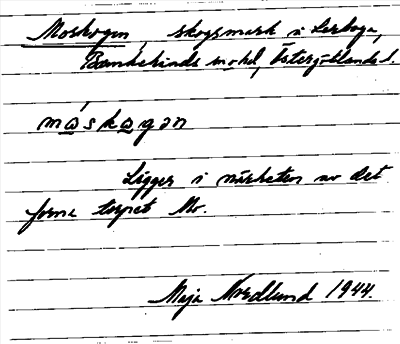 Moskogen, skogsmark i Lerboga,
Bankekinds sn o hd, Östergötlands l.
måskogən
Ligger i närheten av det
forna torpet Mo.
Maja Nordlund 1944.